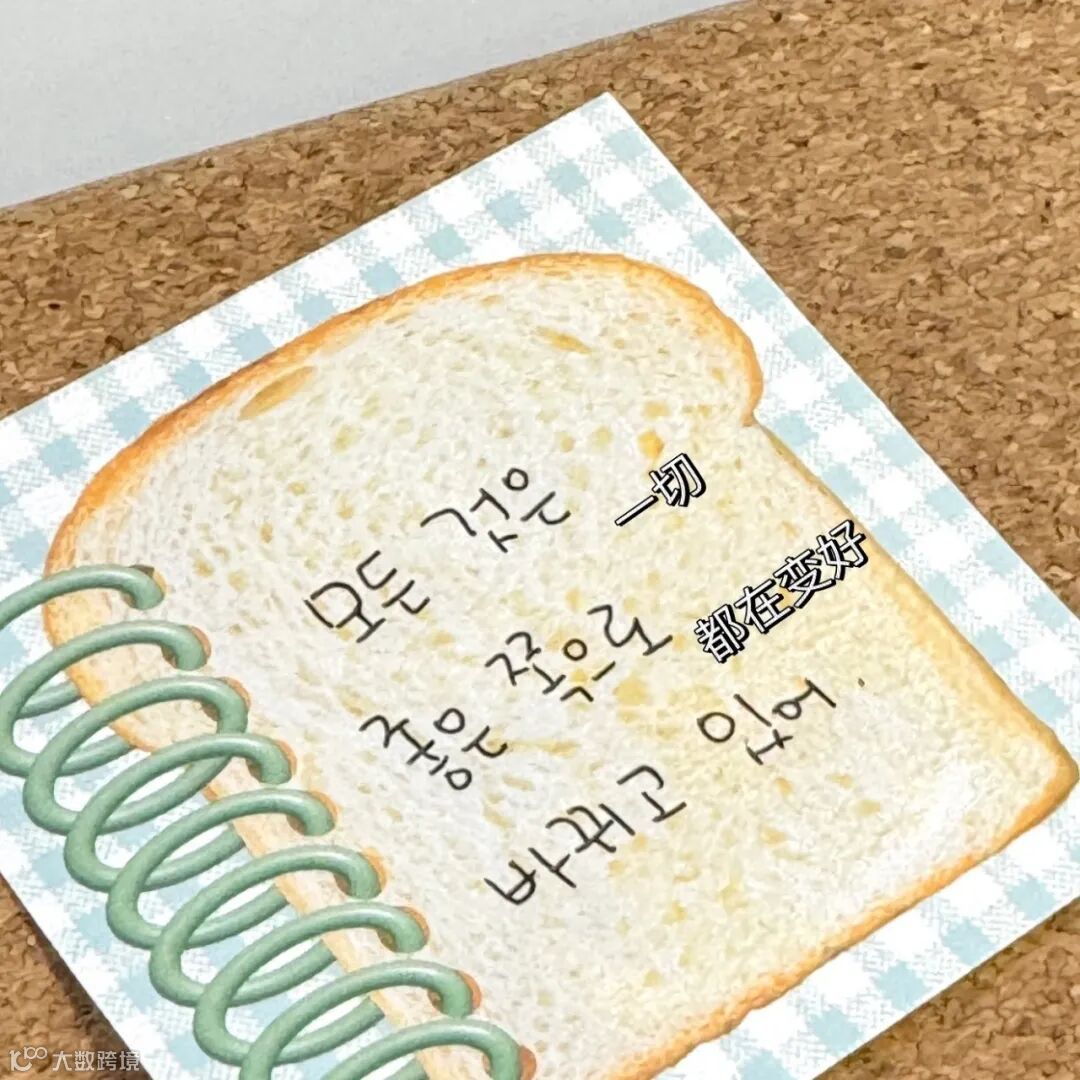 모든 것은
一切
좋은 쪽으로
都在变好
바꾸고 있어
大数跨境